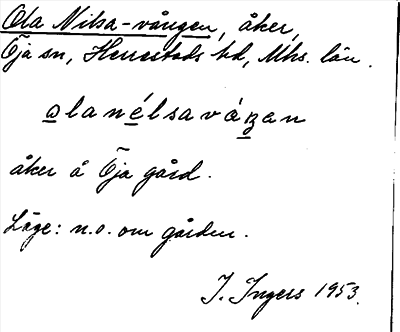 Ola Nilsa-vången, åker,
Öja sn, Herrestads hd, Mhs. län.
olanélsaváŋan
åker å Öja gård.
Läge: n.o. om gården.
I. Ingers 1953.